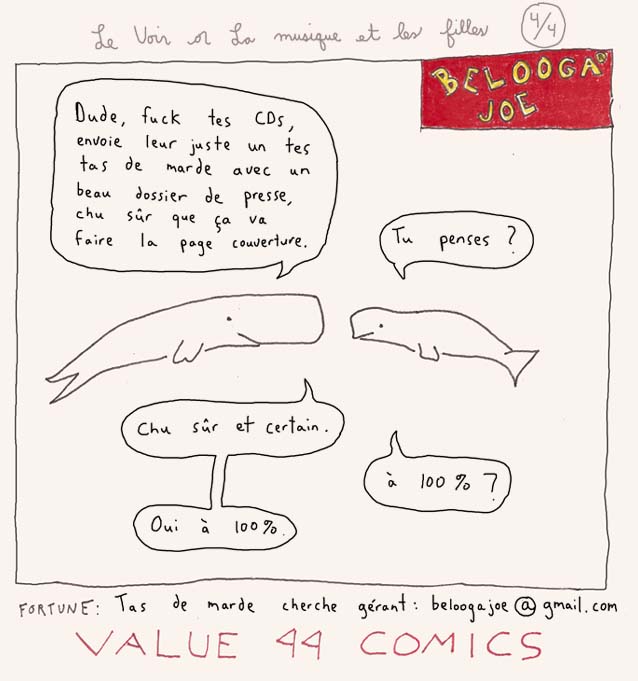 Le Voir or La musique et les filles
4/4
BELOOGA D'
JOE
Dude, fuck tes CDs,
envoie leur juste un tes
tas de marde avec un
beau dossier de presse,
chu sûr que ça va
faire la page couverture.
Tu penses ?
Chu sûr et certain.
à 100 % ?
Oui à 100%.
FORTUNE: Tas de marde cherche gérant: beloogajoe@gmail.com
VALUE 44 COMICS